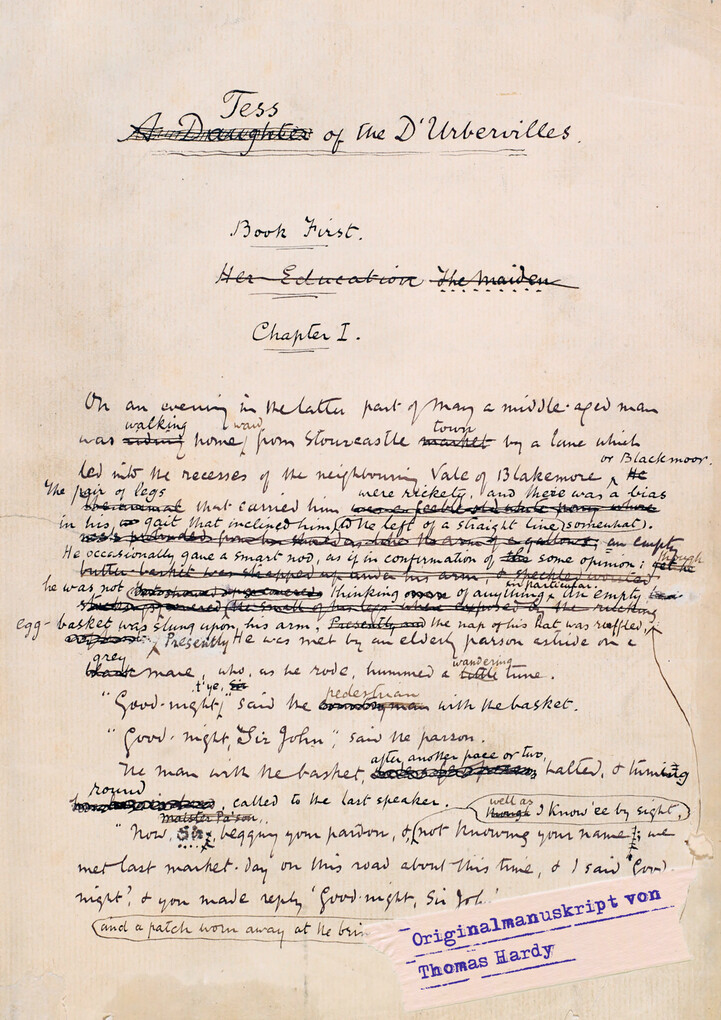 Tess
A Daughter of the D'Urbervilles.
Book First.
Her Education The Maiden
Chapter I.
On an evening in the latter part of May a middle-aged man
walking ward town
was riding home, from Stourcastle market by a lane which
or Blackmoor.
led into the recesses of the neighbouring Vale of Blakemore He
The pair of legs were rickety, and there was a bias
the animal that carried him was a feeble old white pony whose
in his gait that inclined him to the left of a straight line somewhat.
an empty
He occasionally gave a smart nod, as if in confirmation of some opinion; though
butter-basket was strapped up under his arm,
he was not thinking of anything in particular. An empty
egg-basket was slung upon his arm, Presently the nap of his hat was ruffled,
Presently He was met by an elderly parson astride on a
grey wandering
black mare, who, as he rode, hummed a little tune.
t'ye, Sir pedestrian
"Good-night," said the countryman with the basket.
"Good-night, Sir John," said the parson.
after another pace or two,
The man with the basket, halted, & turning
round
, called to the last speaker.
maister Pa'son, well as though I know'ee by sight,
"Now, Sir, begging your pardon, & not knowing your name; we
met last market-day on this road about this time, & I said 'Good
night', & you made reply 'Good-night, Sir Joh
and a patch worn away at the brim
Originalmanuskript von
Thomas Hardy